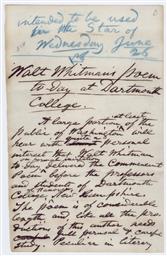 intended to be used
for the Star of
Wednesday June
26
Walt Whitman's Poem
to-Day at Dartmouth
College.
A large portion of the
public of Washington will
hear with personal
interest that Walt Whitman
to-day delivers the Commencement
Poem before the professors
and students of Dartmouth
College, New Hampshire.
Poem is of considerable
length, and like all the pro
ductions of this author needs
full perusal &
study. Peculiar in literary